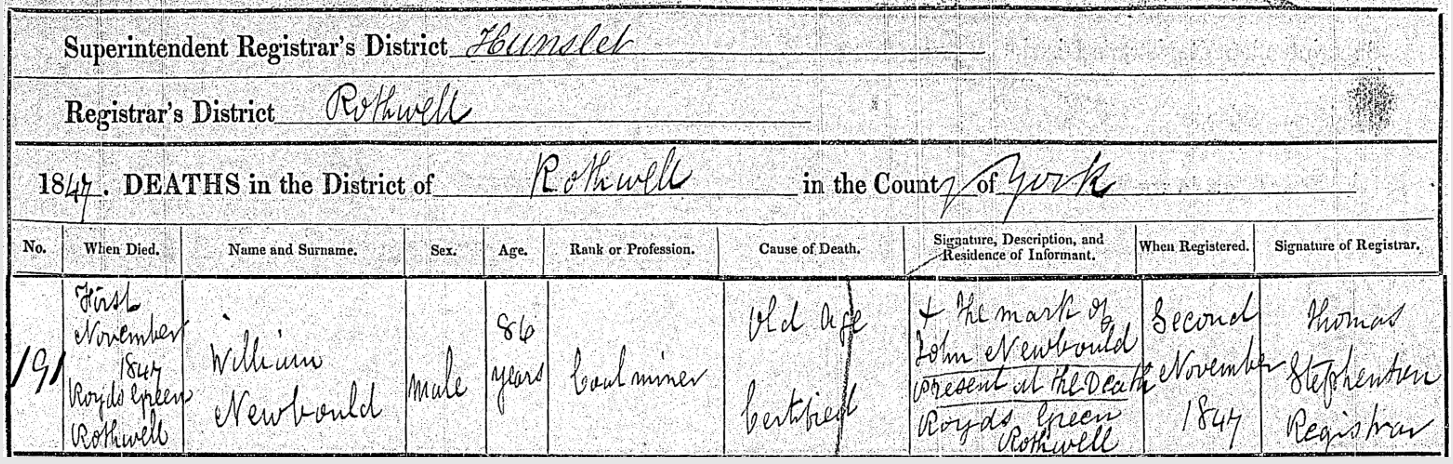 Superintendent Registrar's District Hunslet
Registrar's District Rothwell
1847. DEATHS in the District of Rothwell in the County of York
No.
When Died.
Name and Surname.
Sex.
Age.
Rank or Profession.
Cause of Death.
Signature, Description, and
Residence of Informant.
When Registered.
Signature of Registrar.
191
First
November
1847
Royds Green
Rothwell
William
Newbould
Male
86
years
Coal miner
Old Age
Certified
+ The mark of
John Newbould
Present at the Death
Royds Green
Rothwell
Second
November
1847
Thomas
Stephenson
Registrar